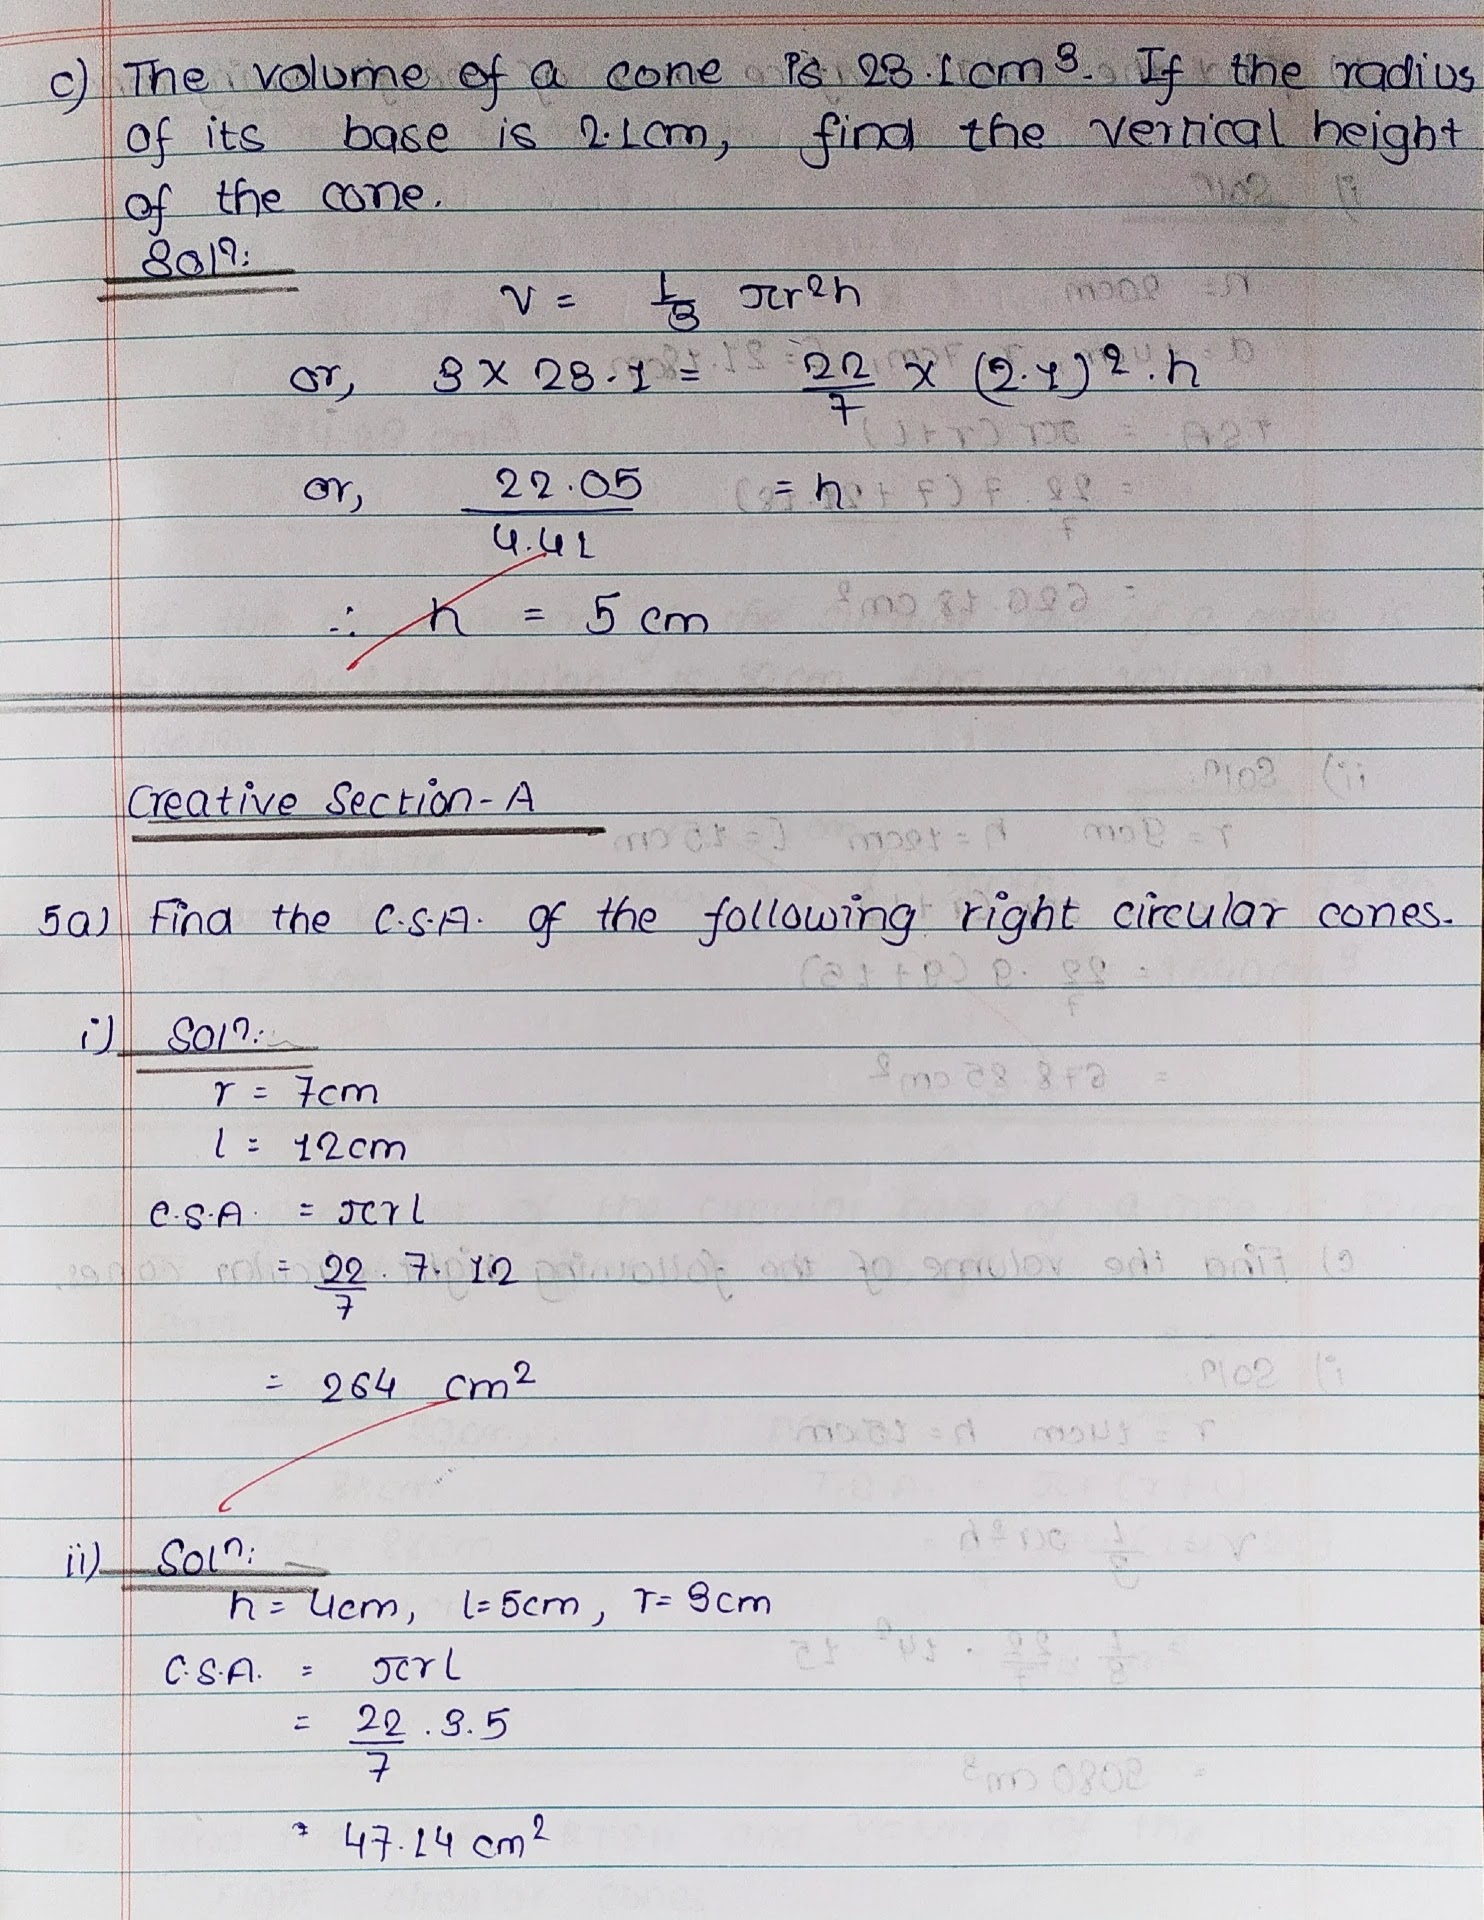 c) The volume of a cone is 23.1cm³. If the radius
of its base is 2.1cm, find the vertical height
of the cone.
Solⁿ:
V = 1/3 πr²h
or, 3 × 23.1 = 22/7 × (2.1)².h
or, 22.05/4.41 = h
∴ h = 5 cm
Creative Section-A
5a) Find the C.S.A. of the following right circular cones.
i) Solⁿ:
r = 7cm
l = 12cm
C.S.A. = πrl
= 22/7 . 7. 12
= 264 cm²
ii) Solⁿ:
h = 4cm, l=5cm, r=3cm
C.S.A. = πrl
= 22/7 .3.5
= 47.14 cm²